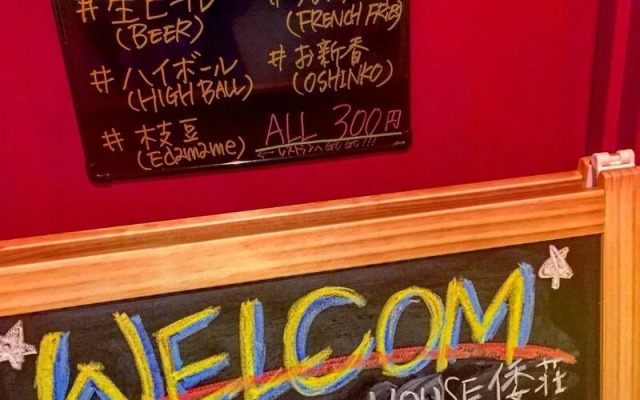 # 生ビール
(BEER)
(FRENCH FRIES)
# ハイボール
(HIGH BALL)
# お新香
(OSHINKO)
# 枝豆
(Edamame)
ALL 300円
WELCOM
HOUSE 倭荘